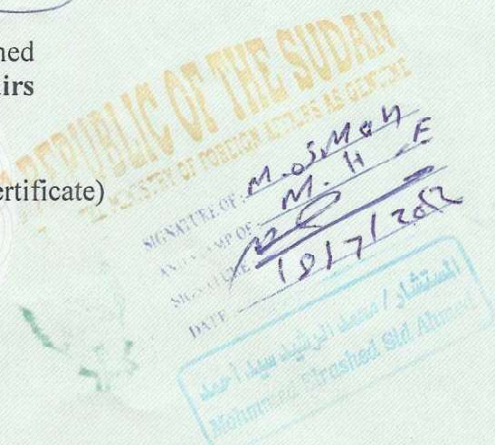 ned
irs
ertificate)
REPUBLIC OF THE SUDAN
MINISTRY OF FOREIGN AFFAIRS AS GENUINE
SIGNATURE OF: M. OSMAN
AND STAMP OF M. H. F
SIGNATURE:
DATE
المستشار / محمد الرشيد سيد أحمد
Mohammed Elrashed Sid Ahmed